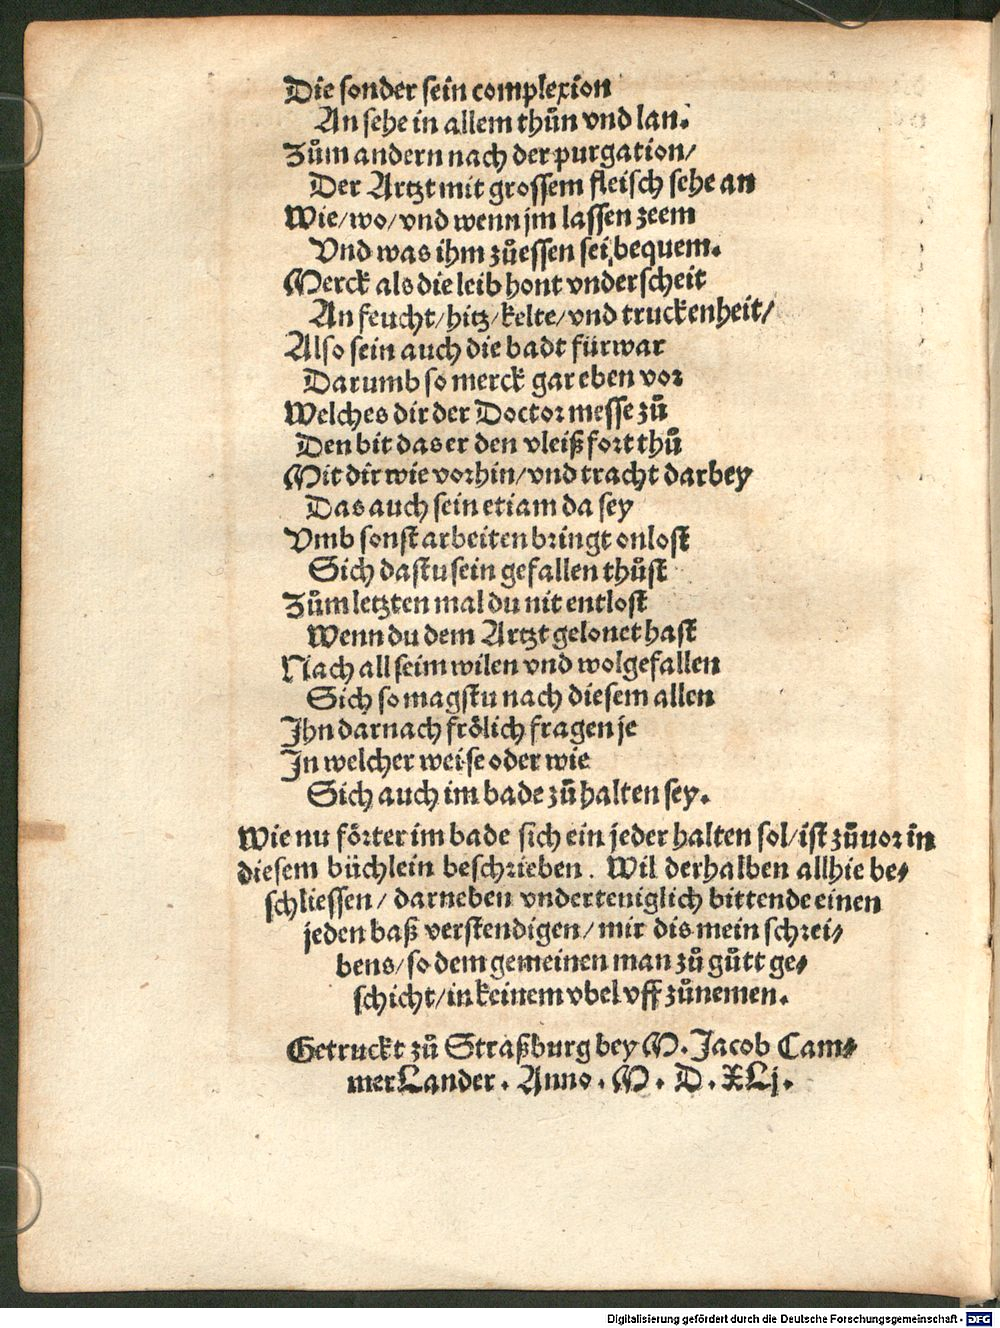 Die sonder sein complexion
An sehe in allem thůn vnd lan.
Zům andern nach der purgation/
Der Artzt mit grossem fleisch sehe an
Wie/wo/vnd wenn jm lassen zeem
Vnd was ihm zůessen sei bequem.
Merck als die leib hont vnderscheit
An feucht/hitz/kelte/vnd truckenheit/
Also sein auch die badt fürwar
Darumb so merck gar eben vor
Welches dir der Doctor messe zů
Den bit das er den vleiß fort thů
Mit dir wie vorhin/vnd tracht darbey
Das auch sein etiam da sey
Vmb sonst arbeiten bringt onlost
Sich dastu sein gefallen thůst
Zům letzten mal du nit entlost
Wenn du dem Artzt gelonet hast
Nach all seim wilen vnd wolgefallen
Sich so magstu nach diesem allen
Ihn darnach frölich fragen je
In welcher weise oder wie
Sich auch im bade zů halten sey.
Wie nu förter im bade sich ein jeder halten sol/ist zůuor in
diesem büchlein beschrieben. Wil derhalben allhie be-
schliessen/ darneben vnderteniglich bittende einen
jeden baß verstendigen/mir dis mein schrei-
bens/so dem gemeinen man zů gůtt ge-
schicht/in keinem vbel vff zůnemen.
Getruckt zů Straßburg bey M. Jacob Cam-
merLander. Anno. M. D. XLj.
Digitalisierung gefördert durch die Deutsche Forschungsgemeinschaft - DFG